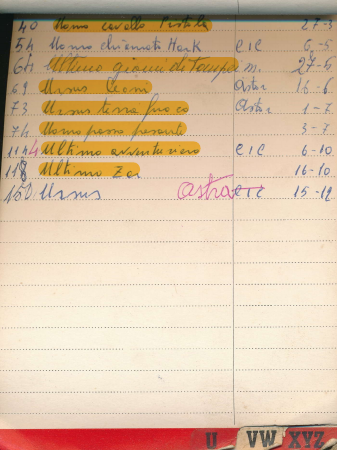 40 Uomo cavallo Pistola 27-3
54 Uomo chiamata Hark CIC 6-5
64 Ultimo giorni di Pompei m. 27-5
69 Ursus Leoni astar 16-6
73 Ursus terra fuoco astar 1-7
74 Uomo passa pesante 3-7
114 4 Ultimo avventuriero CIC 6-10
118 Ultimo Zar 16-10
150 Ursus astra CIC 15-12
U VW XYZ